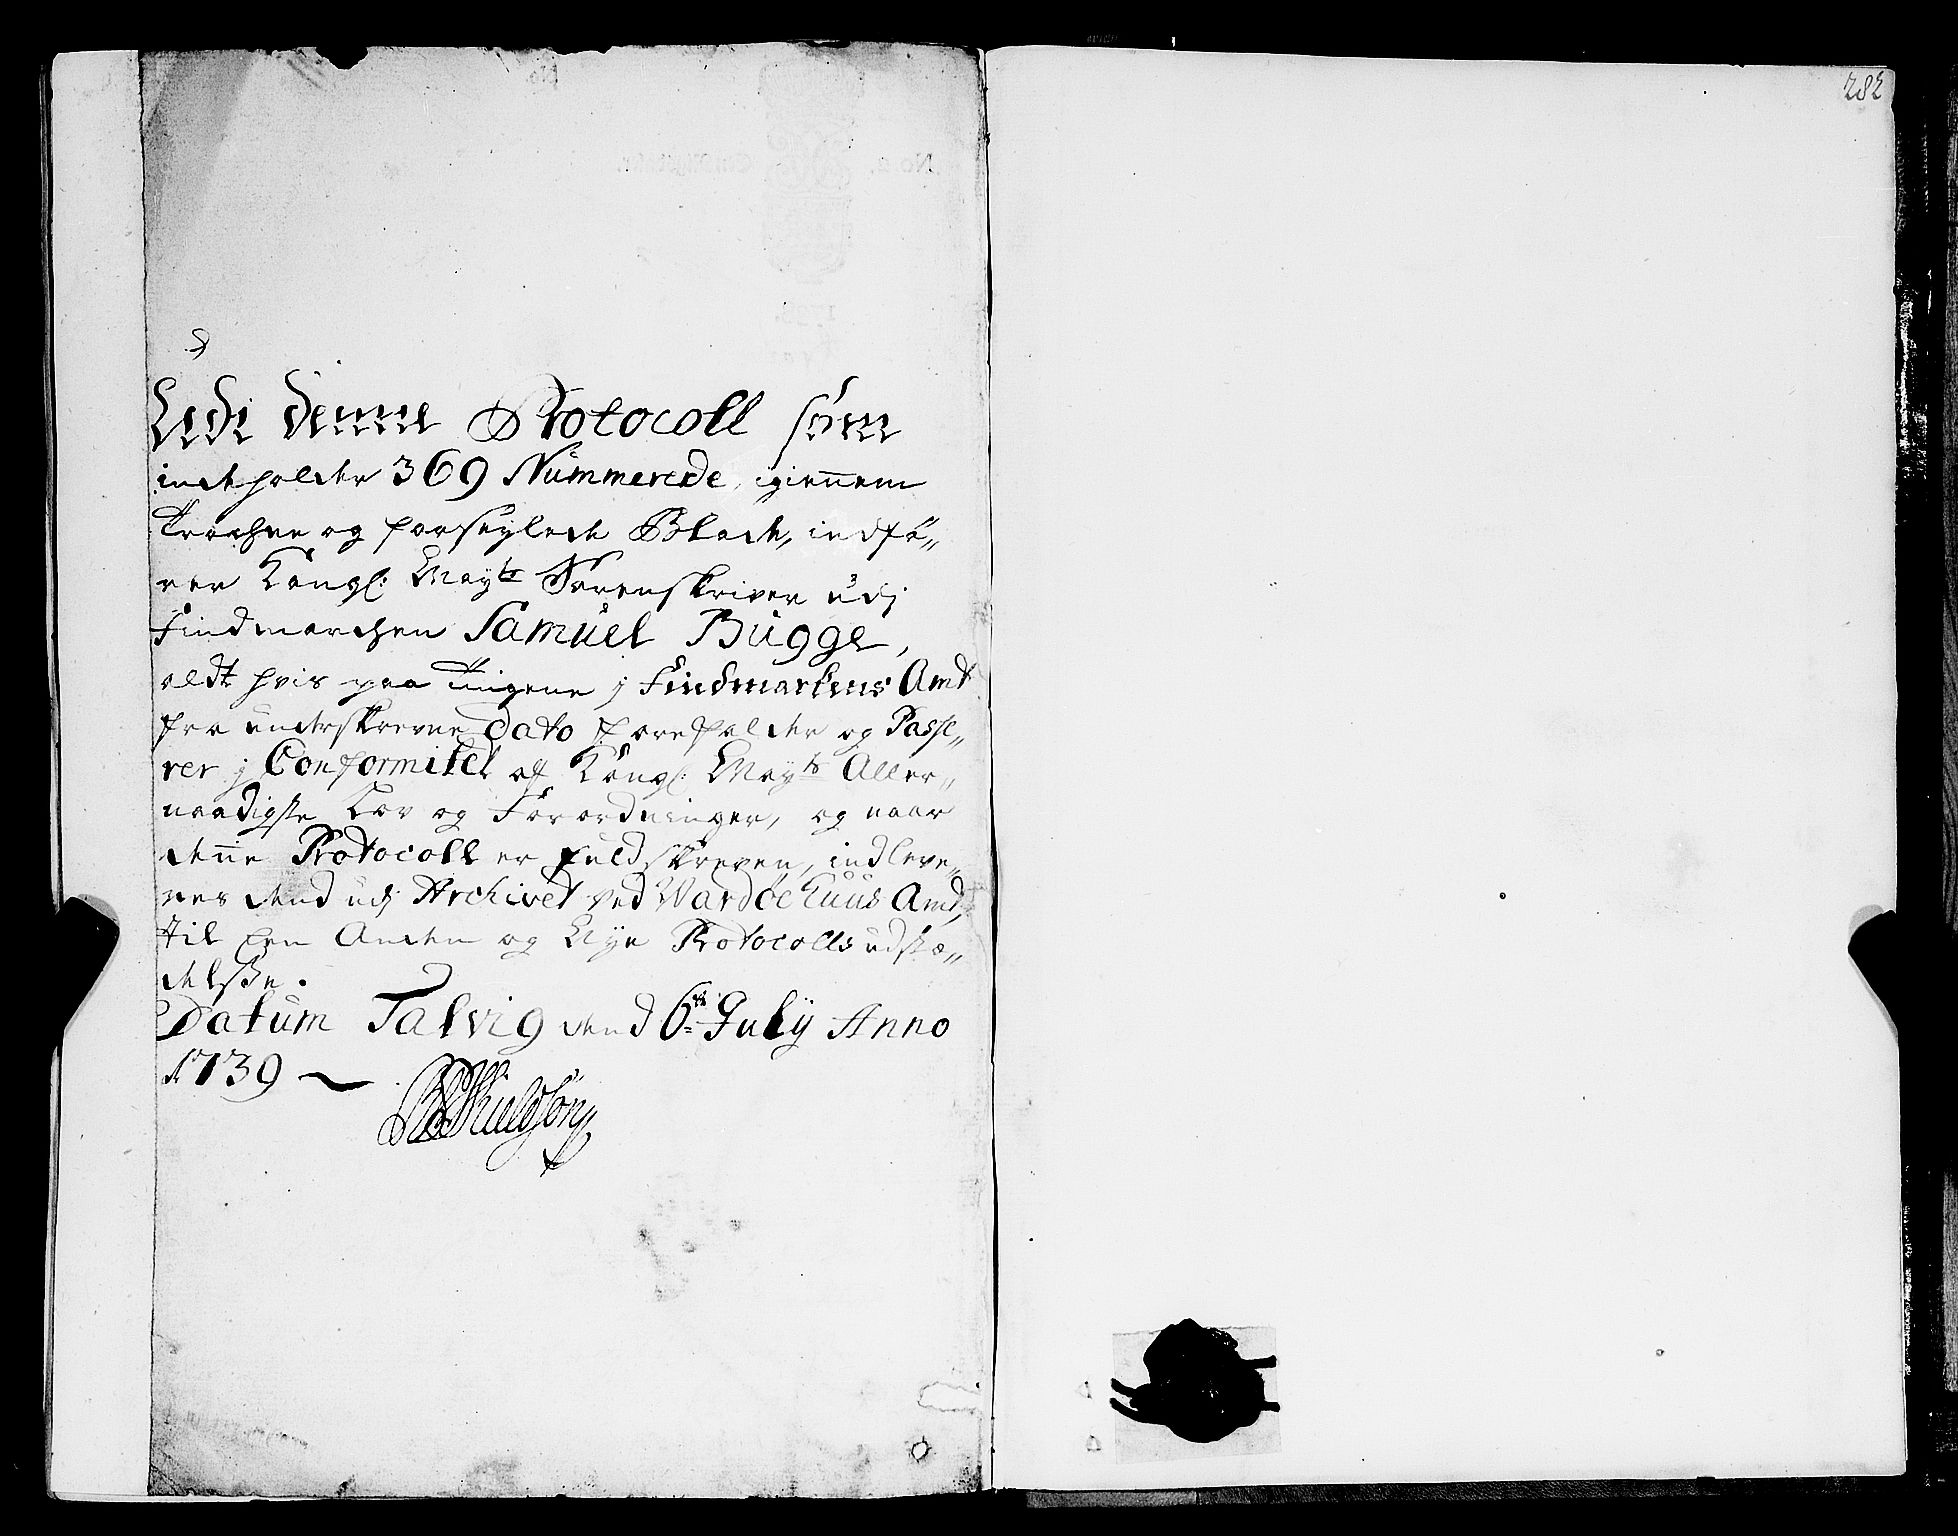 282
Udi denne Protocoll som
indeholder 369 Nummerede, igiennem
Trachne og forseylede Blade, indfø„
rer Kongl: Mayts Sorenskriver udj
Findmarchen Samuel Bugge,
aldt hvis paa Tingene j Findmarkens Amt
fra underskrevne Dato forefalder og Passe„
rer j Conformitet af Kongl: Mayts Aller„
naadigste Lov og Forordninger, og naar
denne Protocoll er fuldskreven, indleve„
res dend udj Archivet ved WardøeHuus Amt,
til Een Anden og Nye Protocolls udstæ„
delse.
Datum Talvig dend 6te July Anno
1739